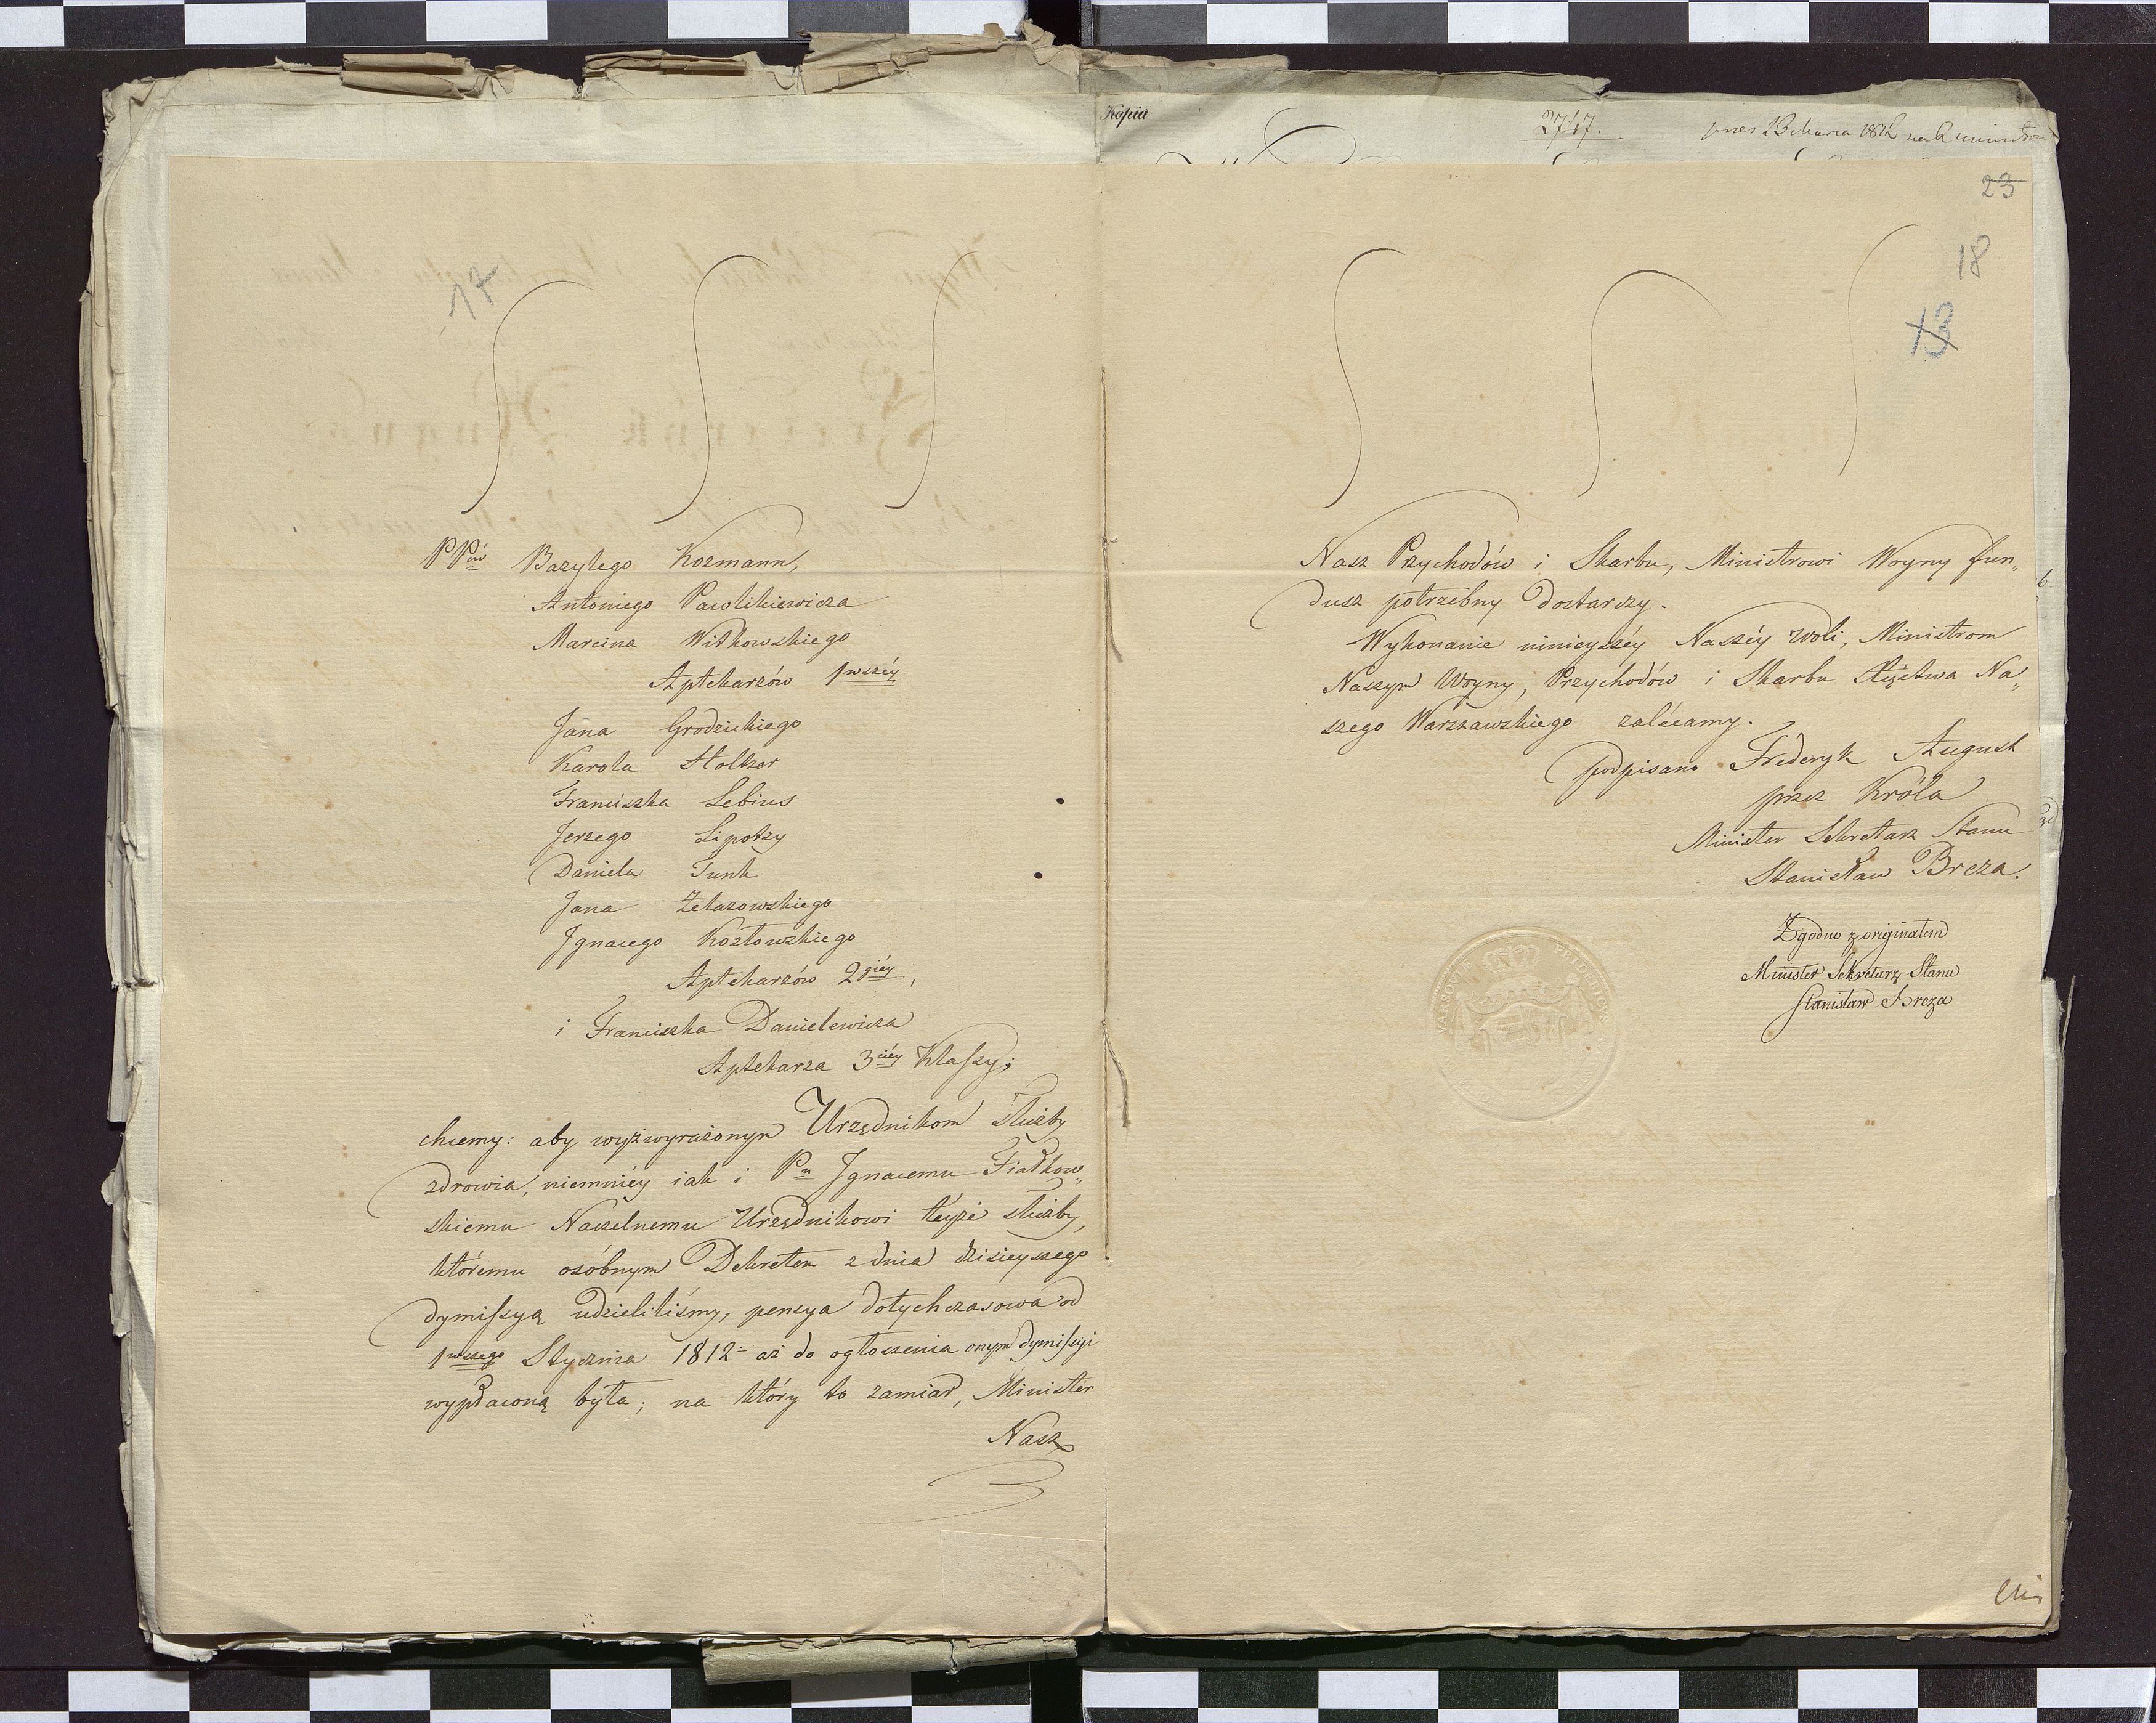 17
PPów Bazylego Kozmann,
Antoniego Pawlikiewicza
Marcina Witkowskiego
Aptekarzów 1wszéy
Jana Grodzickiego
Karola Holtzer
Franciszka Lebius
Jerzego Lipotzy
Daniela Funk
Jana Żelazowskiego
Jgnacego Kozłowskiego
Aptekarzów 2giéy,
i Franciszka Danielewicza
Aptekarza 3ciéy Klassy;
chcemy: aby wyżwyrażonym Urzędnikom służby
zdrowia, niemniéy iak i Pu Jgnacemu Fiałkow„
skiemu Naczelnemu Urzędnikowi téyże służby,
któremu osóbnym Dekretem z dnia dzisieyszego
dymissyą udzieliliśmy, pensya dotychczasowa od
1wszego Stycznia 1812 aż do ogłoszenia onym dymissyi
wypłaconą była; na który to zamiar, Minister
Nasz
Kopia
2717.
23
18
13
Nasz Przychodów i Skarbu, Ministrowi Woyny fun„
dusz potrzebny dostarczy.
Wykonanie ninieyszéy Naszéy woli, Ministrom
Naszym Woyny, Przychodów i Skarbu Xięstwa Na„
szego Warszawskiego zalécamy.
podpisano Frederyk August
przez Króla
Minister Sekretarz Stanu
Stanisław Breza.
Zgodno z originałem
Minister Sekretarz Stanu
Stanisław Breza